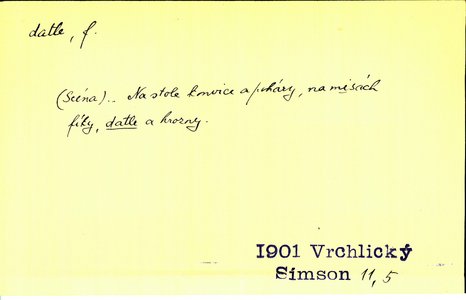 datle, f.
(Scéna).. Na stole konvice a poháry, na mísách
fíky, datle a hrozny.
1901 Vrchlický
Simson 11,5